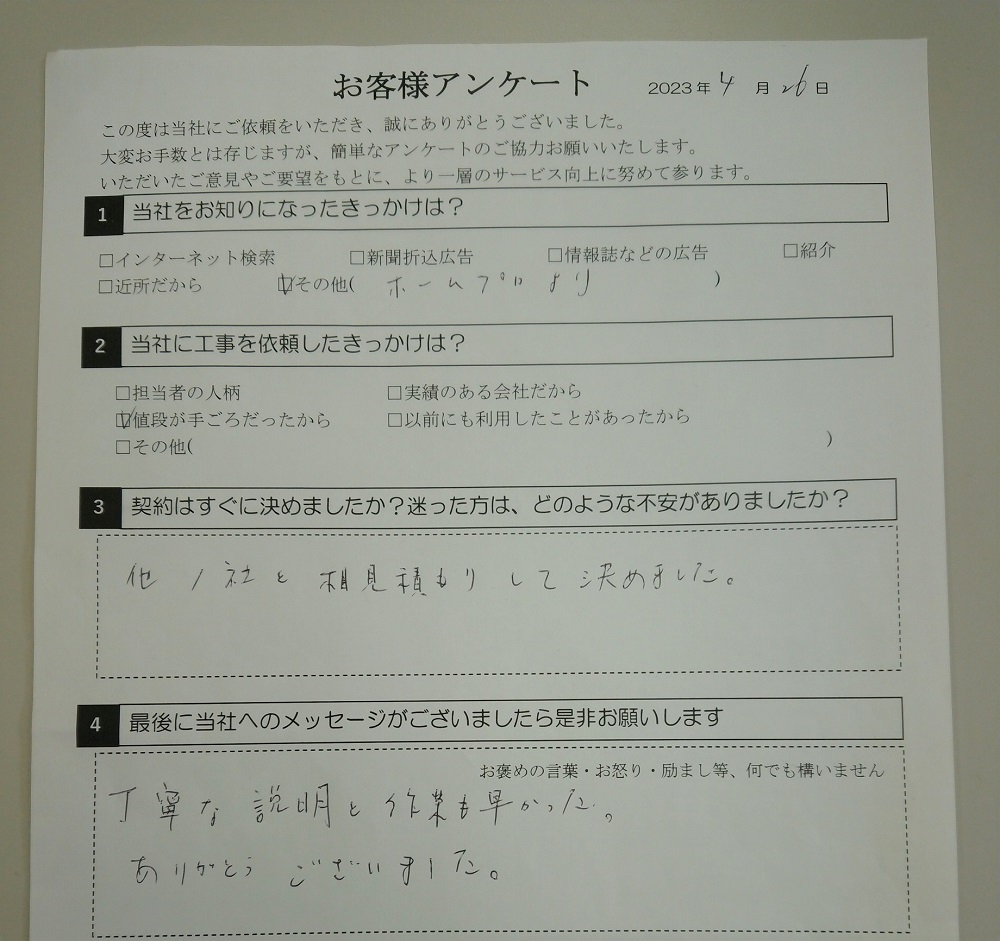 お客様アンケート 2023年4月26日
この度は当社にご依頼をいただき、誠にありがとうございました。
大変お手数とは存じますが、簡単なアンケートのご協力お願いいたします。
いただいたご意見やご要望をもとに、より一層のサービス向上に努めて参ります。
1 当社をお知りになったきっかけは？
□インターネット検索 □新聞折込広告 □情報誌などの広告 □紹介
□近所だから ☑その他( ホームプロより )
2 当社に工事を依頼したきっかけは？
□担当者の人柄 □実績のある会社だから
☑値段が手ごろだったから □以前にも利用したことがあったから
□その他( )
3 契約はすぐに決めましたか？迷った方は、どのような不安がありましたか？
他1社と相見積もりして決めました。
4 最後に当社へのメッセージがございましたら是非お願いします
お褒めの言葉・お怒り・励まし等、何でも構いません
丁寧な説明と作業も早かった。
ありがとうございました。